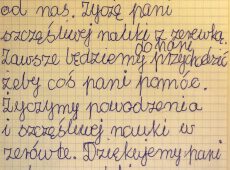 od nas. Życzę pani
szczęśliwej nauki z zerówką.
Zawsze będziemy do pani przychodzić
żeby coś pani pomóc.
Życzymy powodzenia
i szczęśliwej nauki w
zerówce. Dziękujemy pani